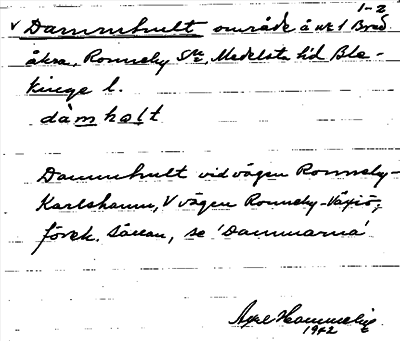 1-2
v Dammhult område å nr 1 Bred
åkra, Ronneby Sn, Medelsta hd Ble-
kinge l.
dàmhɷlt
Dammhult vid vägen Ronneby-
Karlshamn, V vägen Ronneby-Växiö,
förek. såccan, se 'Dammarna'
Axel Hammelig
1942